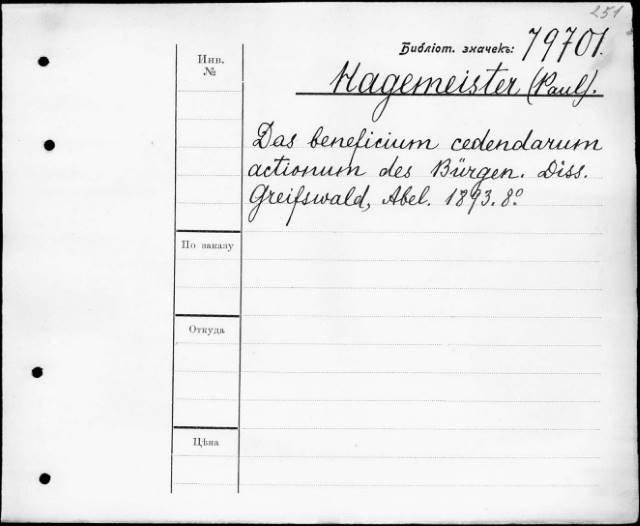 251
Библіот. значекъ: 79701.
Инв.
№
Hagemeister (Paul).
Das beneficium cedendarum
actionum des Bürgen. Diss.
Greifswald, Abel. 1893. 8º
По заказу
Откуда
Цѣна